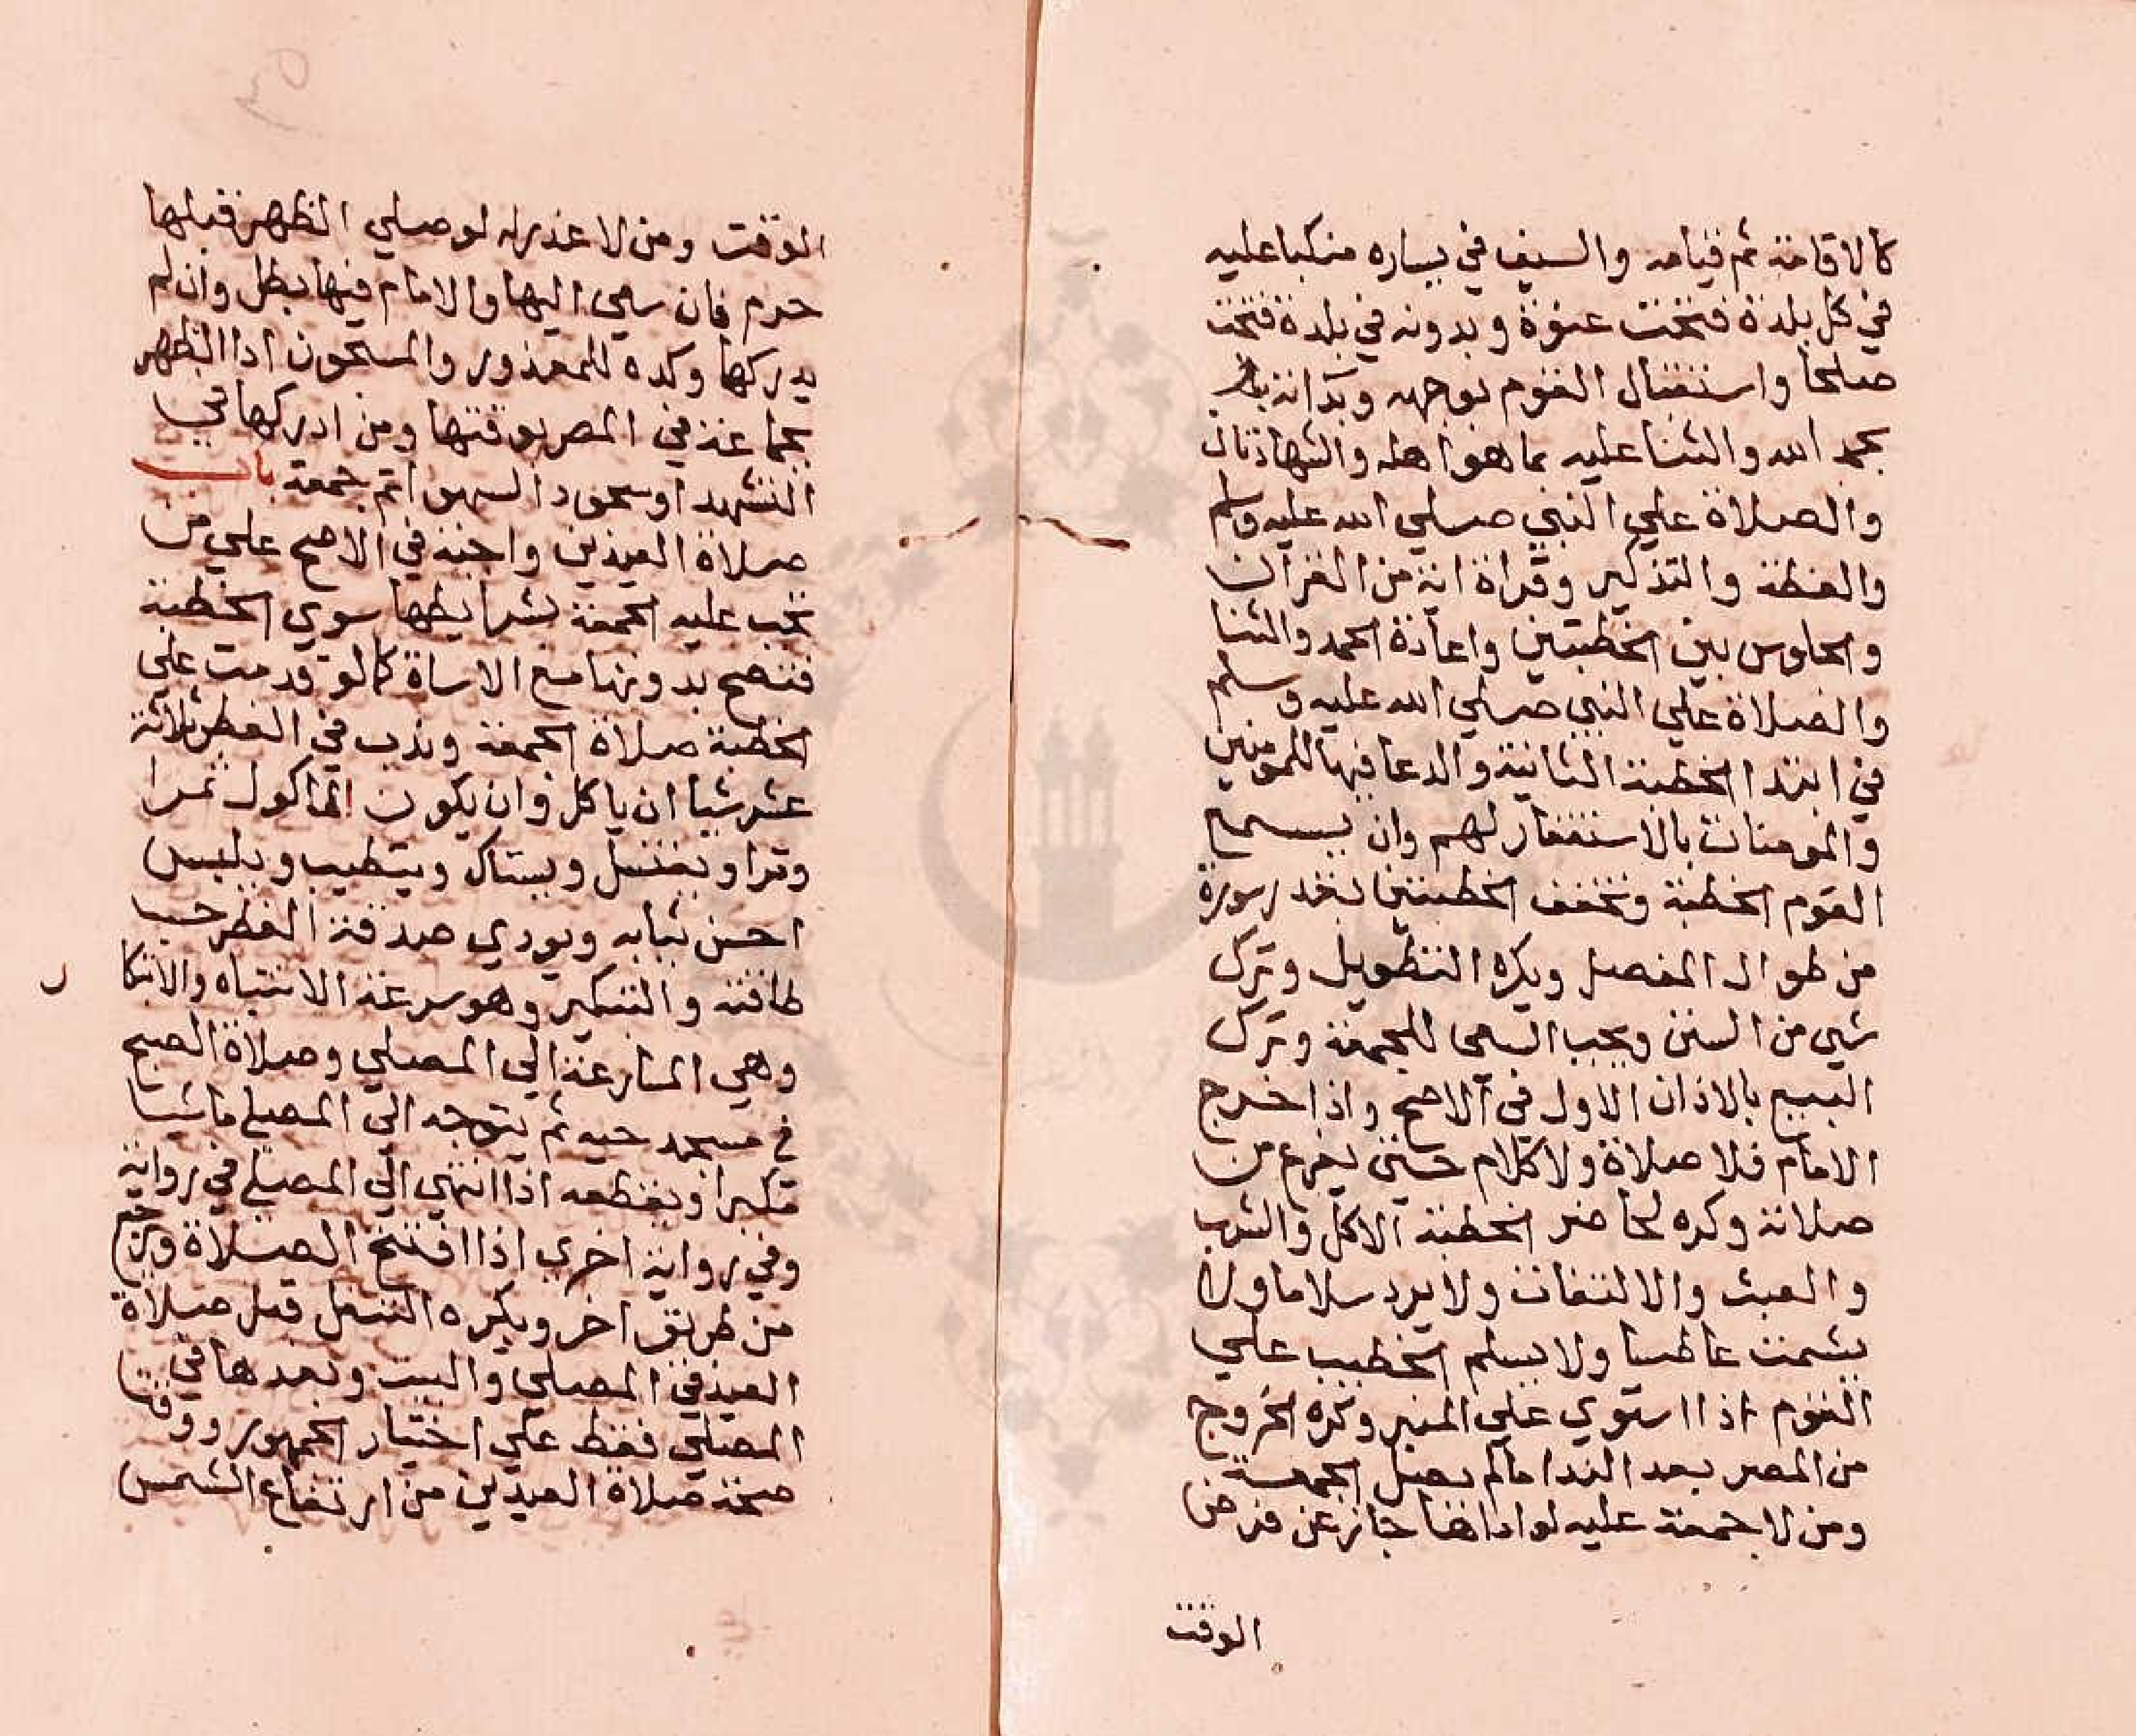 كالاقامة ثم قيامه والسيف في يساره متكيا عليه
في كل بلدة فتحت عنوة وبدونه في بلدة فتحت
صلحا واستقبال القوم بوجهه وبدانة
بحمد الله والثنا عليه بما هو اهله والشهادتان
والصلاة علي النبي صلي الله عليه وسلم
والعظة والتذكير وقراة اية من القران
والجلوس بين الخطبتين واعادة الحمد والثنا
والصلاة علي النبي صلي الله عليه وسلم
في ابتدا الخطبة الثانية والدعا فيها للمومنين
والمومنات بالاستغفار لهم وان يسمع
القوم الخطبة وتخفف الخطبتين بقدر سورة
من طوال المفصل ويكره التطويل وترك
شي من السنن ويجب السعي للجمعة وترك
البيع بالاذان الاول في الاصح واذا خرج
الامام فلا صلاة ولا كلام حتي يفرع من
صلاته وكره لحاضر الخطبة الاكل والشرب
والعبث والالتفات ولا يرد سلاما ولا
يشمت عاطسا ولا يسلم الخطيب علي
القوم اذا استوي علي المنبر وكره الخروج
من المصر بعد الندا مالم يصل الجمعة
ومن لا جمعة عليه لو اداها جاز عن فرض
الوقت
الوقت ومن لا عذر له لو صلي الظهر قبلها
حرم فان سعي اليها والامام فيها بطل وان لم
يدركها وكره للمعذور والمسجون ادا الظهر
بجماعة في المصر بوقتها ومن ادركها في
التشهد او سجود السهو اتم جمعة باب
صلاة العيدين واجبة في الاصح علي من
تجب عليه الجمعة بشرايطها سوي الخطبة
فتصح بدونها مع الاساة كما لو قدمت علي
الخطبة صلاة الجمعة وندب في الفطر ثلاثة
عشر شيا ان ياكل وان يكون الماكول تمرا
وترا ويغتسل ويستاك ويتطيب ويلبس
احسن ثيابه ويودي صدقة الفطر حسب
طاقته والتبكير وهو سرعة الانتباه والابتكا
ر
وهي المسارعة الي المصلي وصلاة الصبح
في مسجد حيه ثم يتوجه الي المصلي ماشيا
مكبرا ويقطعه اذا انتهي الي المصلي في رواية
وفي رواية اخري اذا افتتح الصلاة ويرجع
من طريق اخر ويكره التنفل قبل صلاة
العيد في المصلي والبيت وبعدها في
المصلي فقط علي اختيار الجمهور ووقت
صحة صلاة العيدين من ارتفاع الشمس